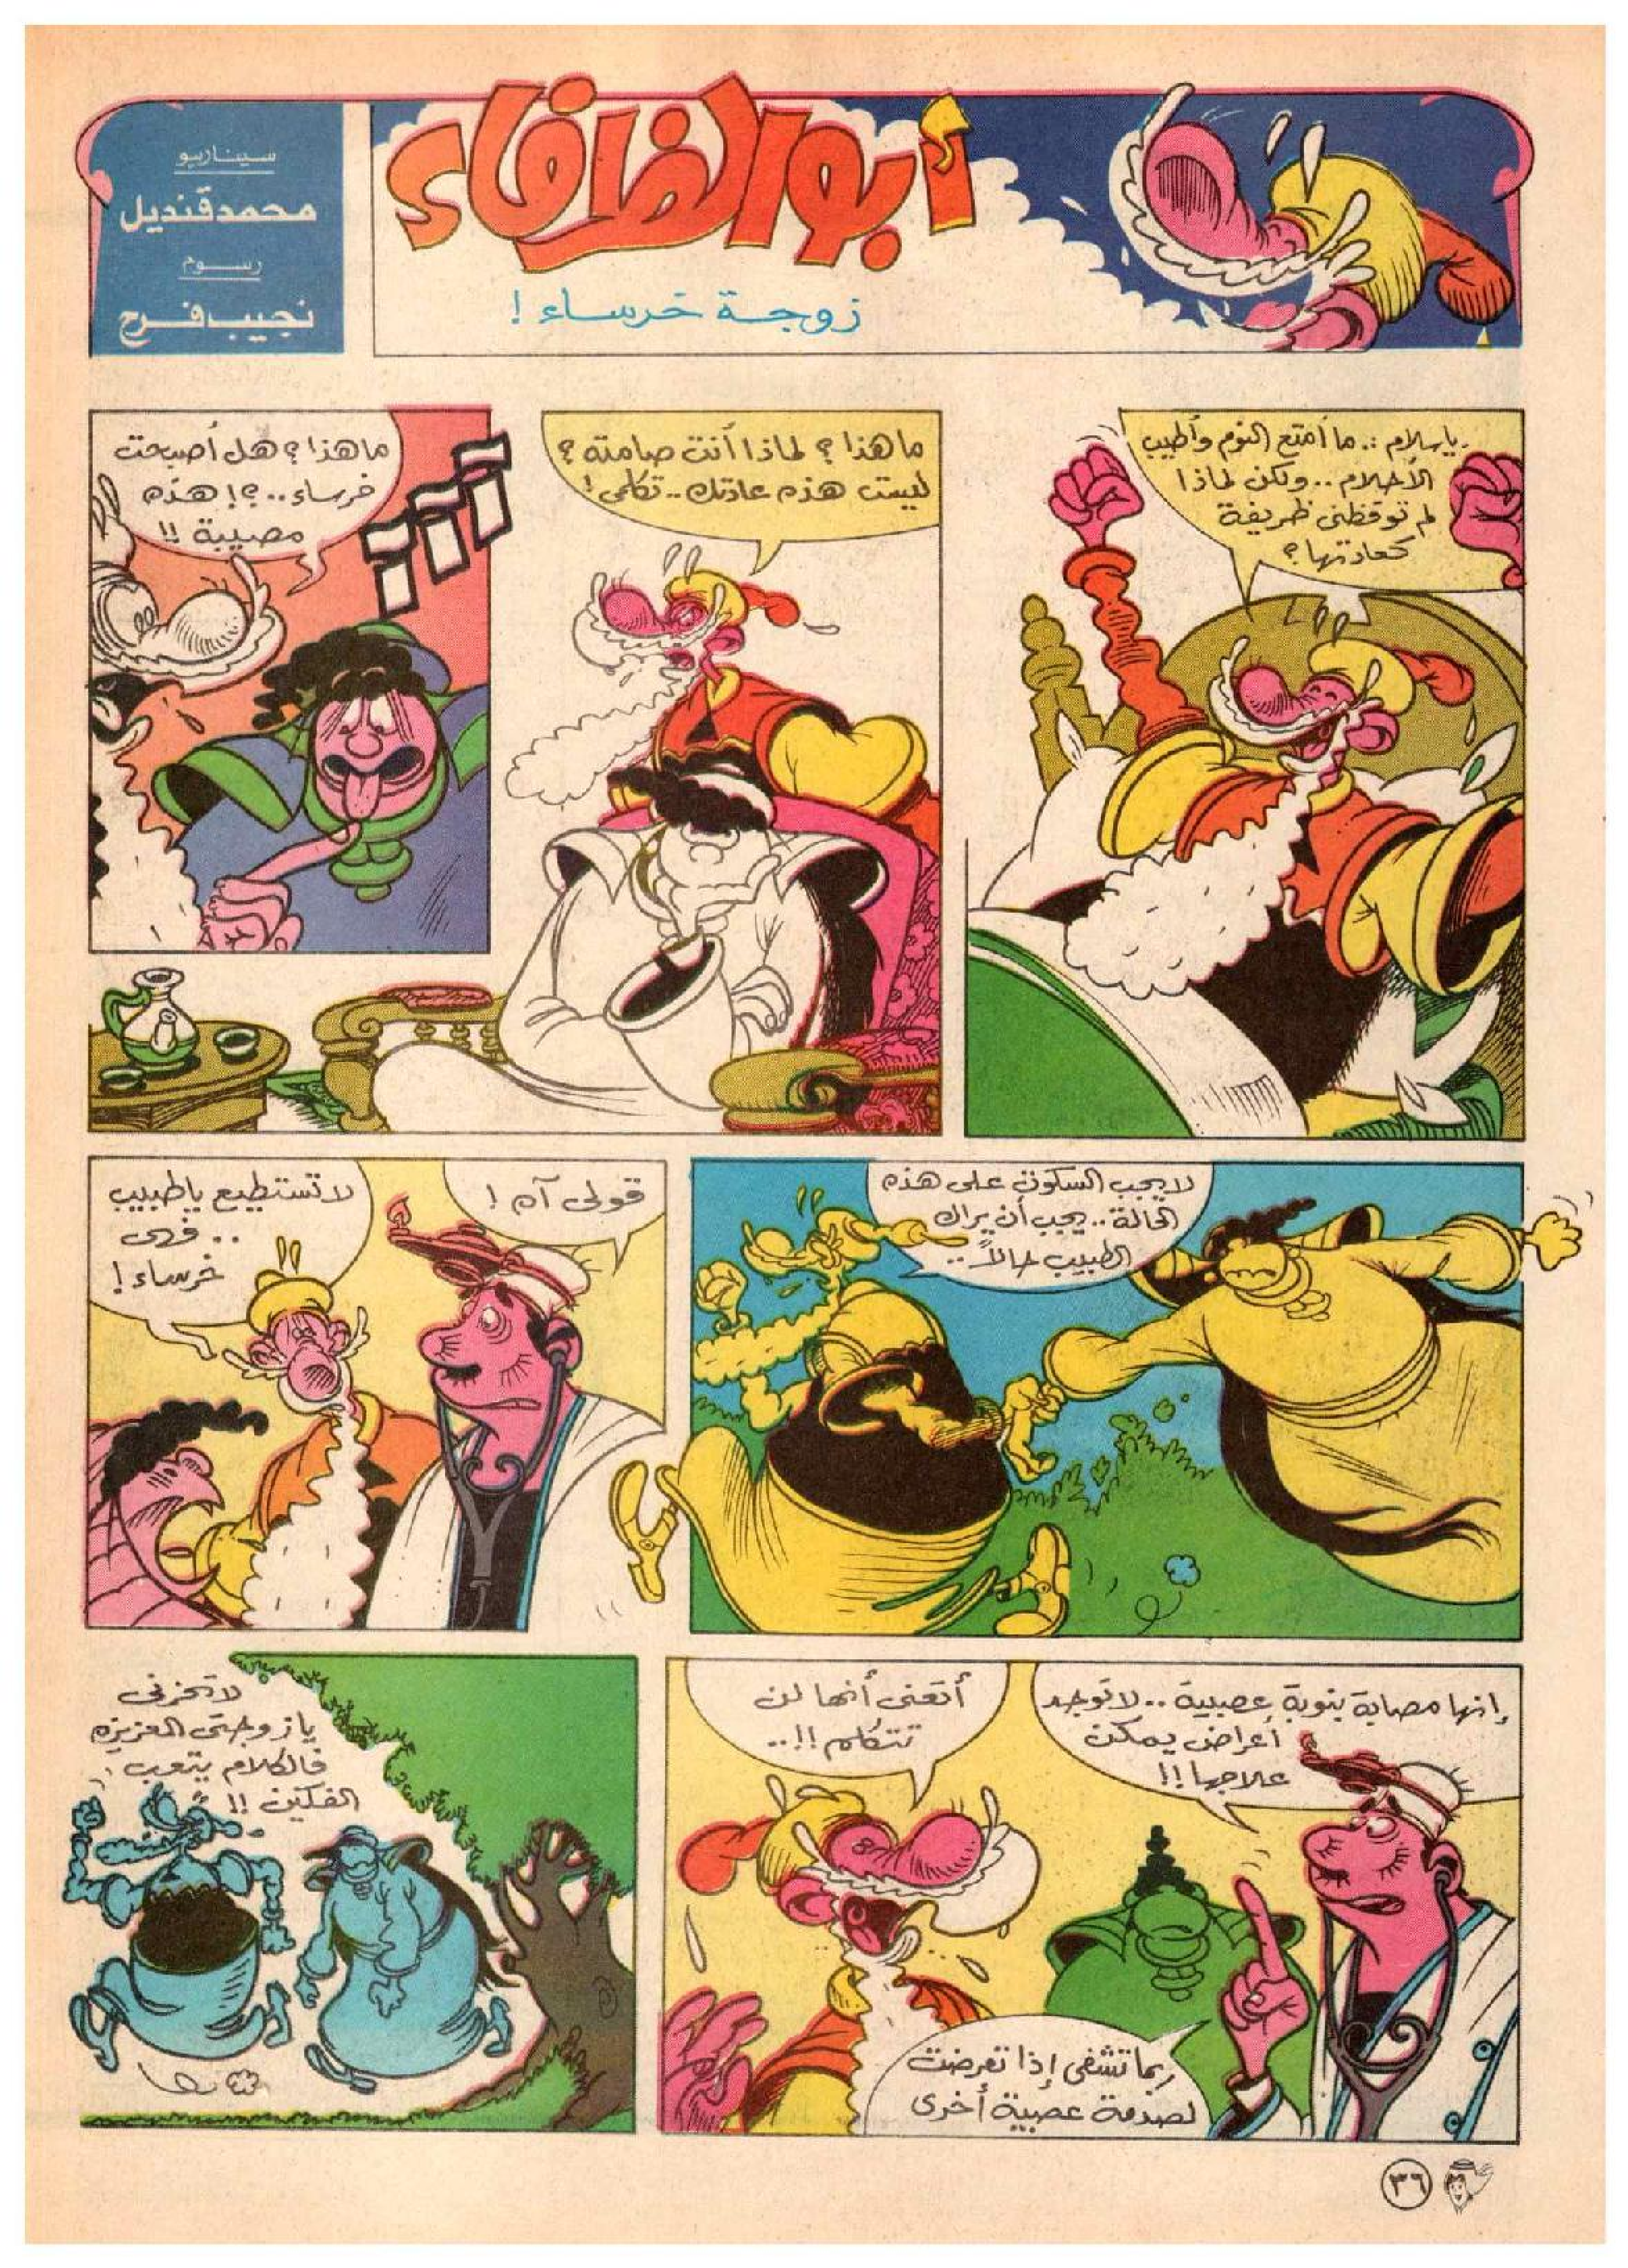 أبو الظافاء
زوجة خرساء !
سيناريو
محمد قنديل
رسوم
نجيب فرح
ياسلام .. ما أمتع النوم وأطيب
الأحلام .. ولكن لماذا
لم توقظنى ظريفة
كعادتها ؟
ما هذا ؟ لماذا أنت صامتة ؟
ليست هذه عادتك .. تكلمى !
ما هذا ؟ هل أصبحت
خرساء .. ؟! هذه
مصيبة !!
لا يجب السكوت على هذه
الحالة .. يجب أن يراك
الطبيب حالاً ..
قولى آه !
لا تستطيع يا طبيب
.. فهى
خرساء !
إنها مصابة بنوبة عصبية .. لا توجد
أعراض يمكن
علاجها !!
أتعنى أنها لن
تتكلم !! ..
ربما تشفى إذا تعرضت
لصدمة عصبية أخرى
لا تحزنى
يا زوجتى العزيزه
فالكلام يتعب
الفكين !!
٣٦